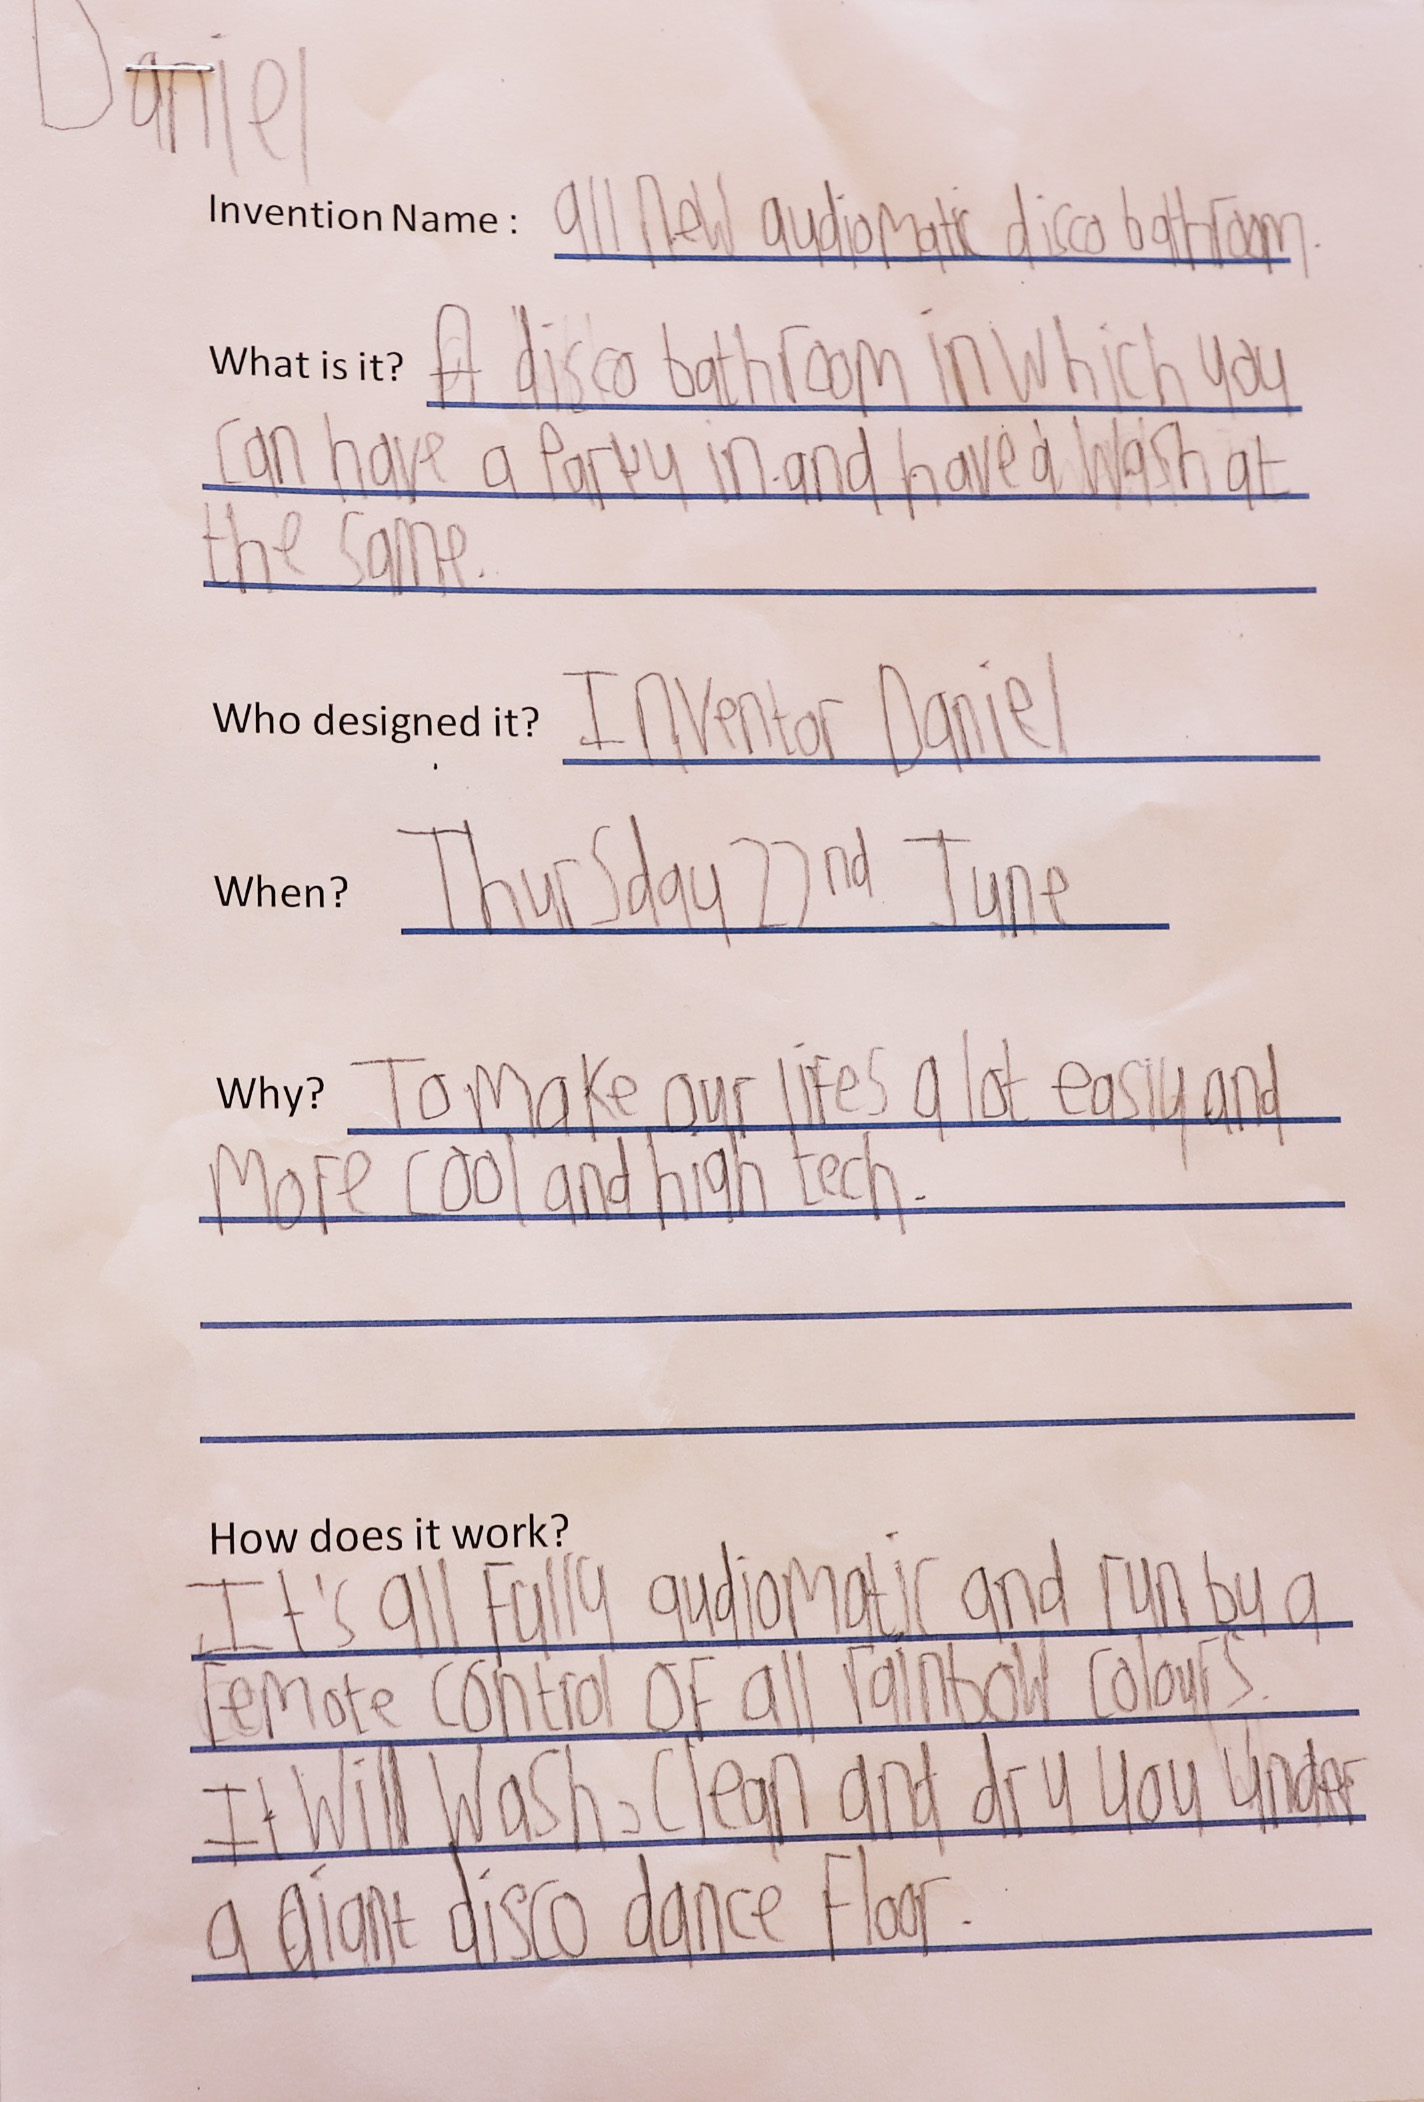 Daniel
Invention Name : all new audiomatic disco bathroom.
What is it? A disco bathroom in which you
can have a Party in and have a wash at
the same.
Who designed it? Inventor Daniel
When? Thursday 22nd June
Why? To make our lifes a lot easiy and
more cool and high tech.
How does it work?
It's all Fully audiomatic and run by a
remote control OF all rainbow colours.
It will wash, clean and dry you under
a giant disco dance Floor.